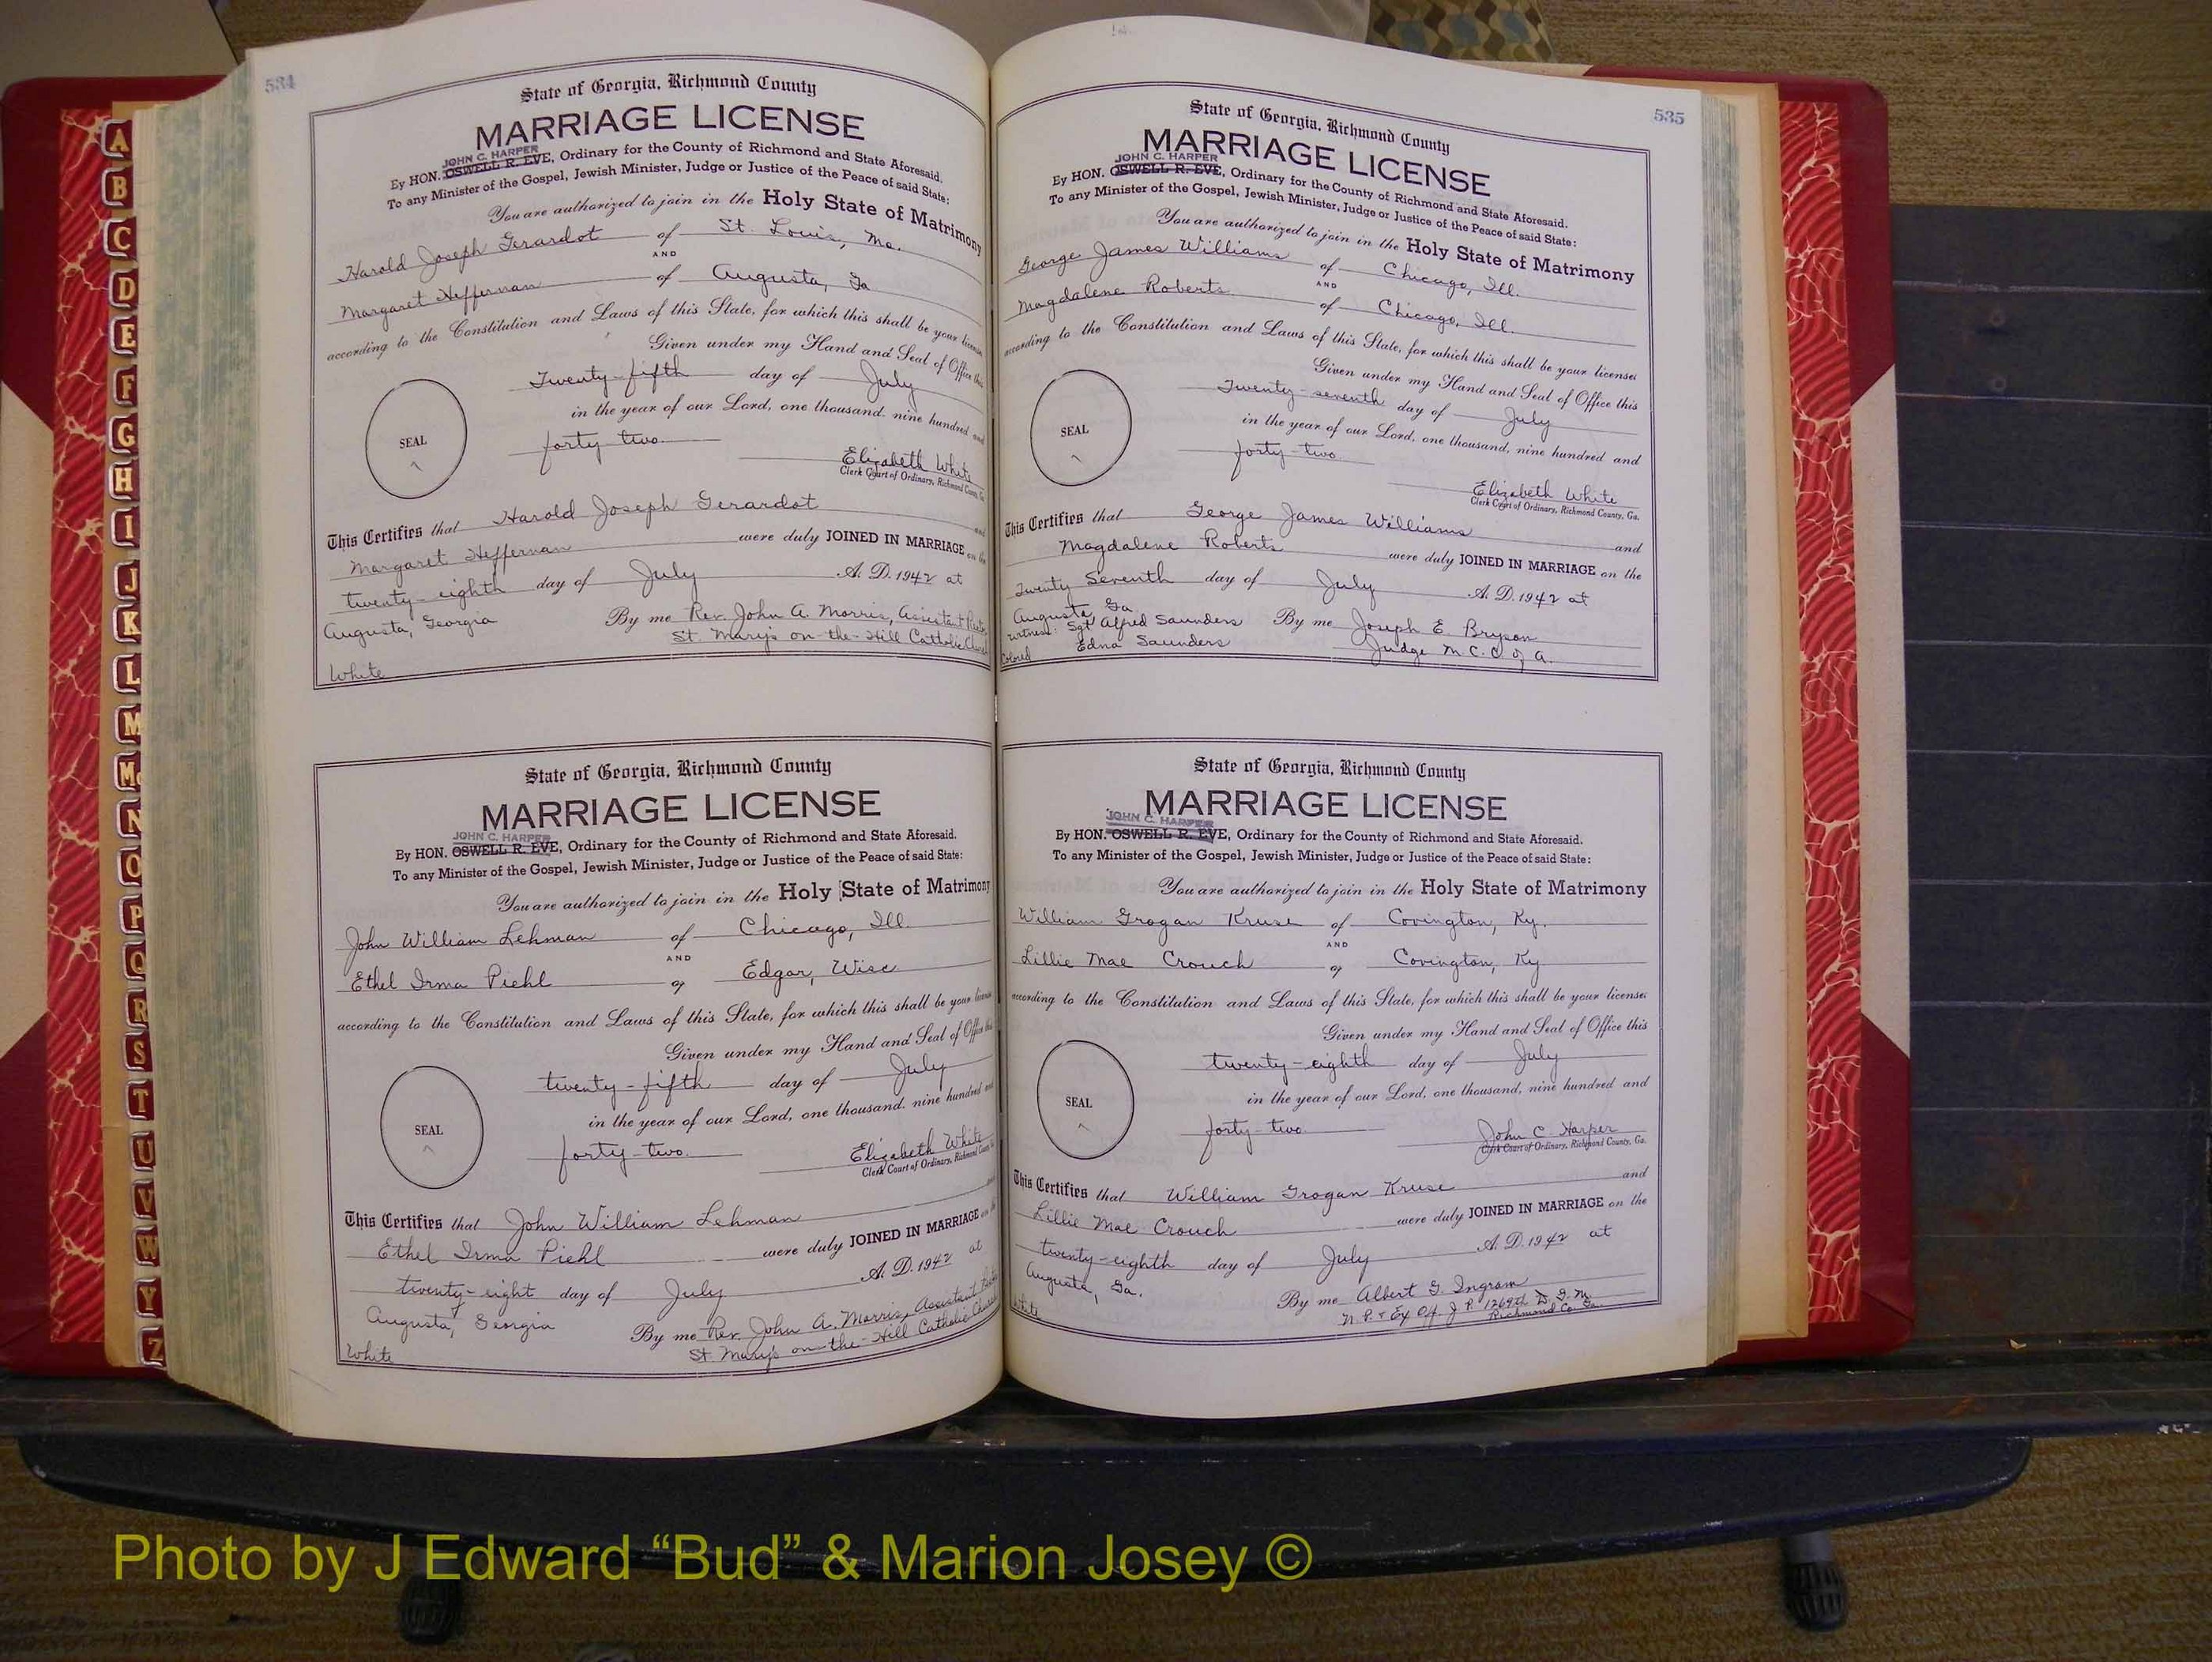 534
State of Georgia, Richmond County
MARRIAGE LICENSE
JOHN C. HARPER
By HON. OSWELL R. EVE, Ordinary for the County of Richmond and State Aforesaid.
To any Minister of the Gospel, Jewish Minister, Judge or Justice of the Peace of said State:
You are authorized to join in the Holy State of Matrimony
Harold Joseph Gerardot of St. Louis, Mo.
AND
Margaret Heffernan of Augusta, Ga
according to the Constitution and Laws of this State, for which this shall be your license
Given under my Hand and Seal of Office this
Twenty-fifth day of July
in the year of our Lord, one thousand, nine hundred and
SEAL
forty two.
Elizabeth White
Clerk Court of Ordinary, Richmond County, Ga.
This Certifies that Harold Joseph Gerardot and
Margaret Heffernan were duly JOINED IN MARRIAGE on the
twenty-eighth day of July A. D. 1942 at
Augusta, Georgia By me Rev. John A. Morris, Assistant Pastor
St. Mary's on-the-Hill Catholic Church
White
State of Georgia, Richmond County
MARRIAGE LICENSE
JOHN C. HARPER
By HON. OSWELL R. EVE, Ordinary for the County of Richmond and State Aforesaid.
To any Minister of the Gospel, Jewish Minister, Judge or Justice of the Peace of said State:
You are authorized to join in the Holy State of Matrimony
John William Lehman of Chicago, Ill.
AND
Ethel Irma Piehl of Edgar, Wisc
according to the Constitution and Laws of this State, for which this shall be your license
Given under my Hand and Seal of Office this
twenty-fifth day of July
in the year of our Lord, one thousand, nine hundred and
SEAL
forty-two.
Elizabeth White
Clerk Court of Ordinary, Richmond County
This Certifies that John William Lehman and
Ethel Irma Piehl were duly JOINED IN MARRIAGE on the
twenty-eight day of July A. D. 1942 at
Augusta, Georgia By me Rev. John A. Morris, Assistant Pastor
St. Mary's on-the-Hill Catholic Church
White
535
State of Georgia, Richmond County
MARRIAGE LICENSE
JOHN C. HARPER
By HON. OSWELL R. EVE, Ordinary for the County of Richmond and State Aforesaid.
To any Minister of the Gospel, Jewish Minister, Judge or Justice of the Peace of said State:
You are authorized to join in the Holy State of Matrimony
George James Williams of Chicago, Ill.
AND
Magdalene Roberts of Chicago, Ill.
according to the Constitution and Laws of this State, for which this shall be your license
Given under my Hand and Seal of Office this
Twenty-seventh day of July
in the year of our Lord, one thousand, nine hundred and
SEAL
forty-two.
Elizabeth White
Clerk Court of Ordinary, Richmond County, Ga.
This Certifies that George James Williams and
Magdalene Roberts were duly JOINED IN MARRIAGE on the
Twenty Seventh day of July A. D. 1942 at
Augusta, Ga
Witness: Sgt Alfred Saunders By me Joseph E. Bryson
Edna Saunders Judge M. C. C. of A.
Colored
State of Georgia, Richmond County
MARRIAGE LICENSE
JOHN C. HARPER
By HON. OSWELL R. EVE, Ordinary for the County of Richmond and State Aforesaid.
To any Minister of the Gospel, Jewish Minister, Judge or Justice of the Peace of said State:
You are authorized to join in the Holy State of Matrimony
William Grogan Kruse of Covington, Ky.
AND
Lillie Mae Crouch of Covington, Ky
according to the Constitution and Laws of this State, for which this shall be your license
Given under my Hand and Seal of Office this
twenty-eighth day of July
in the year of our Lord, one thousand, nine hundred and
SEAL
forty-two
John C. Harper
Clerk Court of Ordinary, Richmond County, Ga.
This Certifies that William Grogan Kruse and
Lillie Mae Crouch were duly JOINED IN MARRIAGE on the
twenty-eighth day of July A. D. 1942 at
Augusta, Ga. By me Albert G. Ingram
N. P. & Ex Off. J. P. 1269th D. G. M.
White Richmond Co. Ga.
A
B
C
D
E
F
G
H
I
J
K
L
M
Mc
N
O
P
Q
R
S
T
U
V
W
Y
Z
Photo by J Edward “Bud” & Marion Josey ©